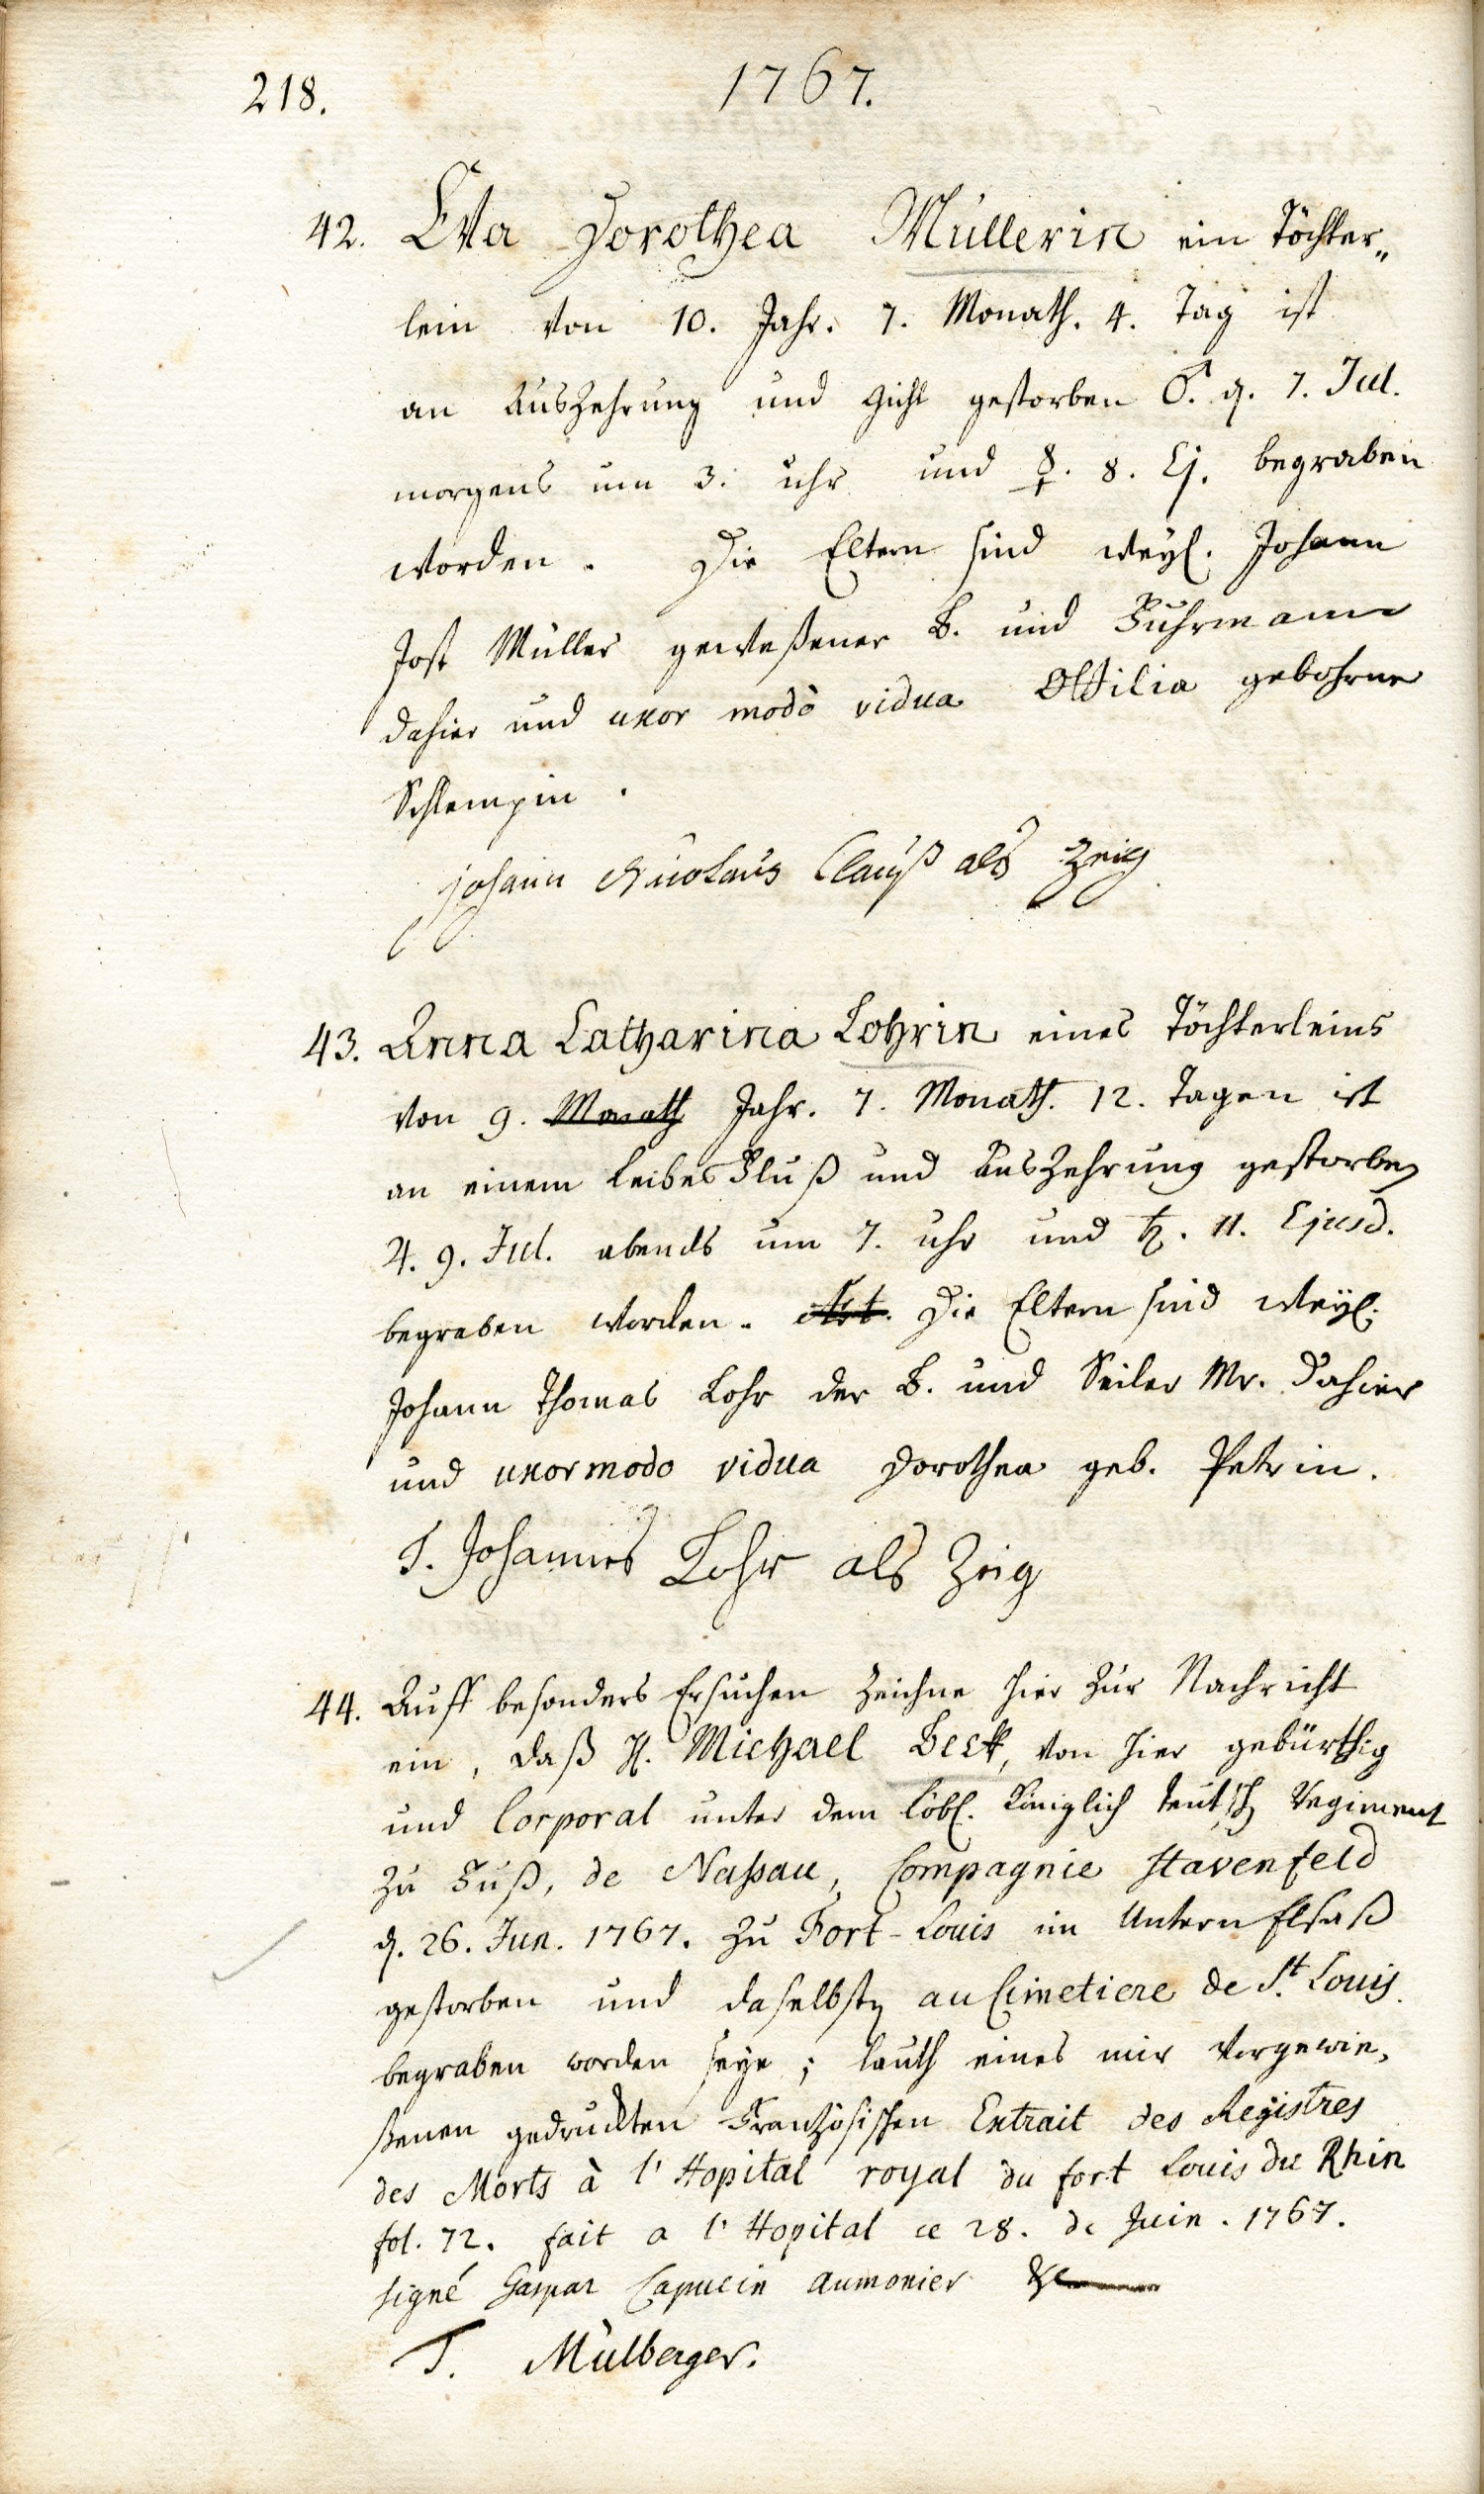 218.
1767.
42. Eva Dorothea Müllerin ein Töchter„
lein von 10. Jahr. 7. Monath. 4. Tag ist
an Auszehrung und Gicht gestorben ♂. d. 7. Jul.
morgens um 3. uhr und ☿. 8. Ej. begraben
worden. Die Eltern sind weyl. Johann
Jost Müller geweßener B. und Fuhrmann
dahier und uxor modò vidua Ottilia gebohrne
Schlempin.
Johann Nicolaus Clauß als Zeig
43. Anna Catharina Lohrin eines Töchterleins
von 9. Monath Jahr. 7. Monath. 12. Tagen ist
an einem Leibes Fluß und Auszehrung gestorben
♃. 9. Jul. abends um 7. uhr und ♄. 11. Ejusd.
begraben worden. Die Eltern sind weyl.
Johann Thomas Lohr der B. und Seiler Mr. dahier
und uxor modo vidua Dorothea geb. Petrin.
T. Johannes Lohr als Zeig
44. Auff besonders Ersuchen zeichne hier zur Nachricht
ein, daß H. Michael Beck, von hier gebürthig
und Corporal unter dem löbl. Königlich teutsch Regiment
zu Fuß, de Nassau, Compagnie Havenfeld
d. 26. Jun. 1767. zu Fort-Louis im Untern Elsaß
gestorben und daselbsten au Cimetiere de St. Louis
begraben worden seye; lauth eines mir vorgewie„
ßenen gedruckten Französischen Extrait des Registres
des Morts à l'Hopital royal du fort Louis du Rhin
fol. 72. fait a l'Hopital ce 28. de Juin. 1767.
signé Gaspar Capucin Aumonier &c
T. Mülberger.